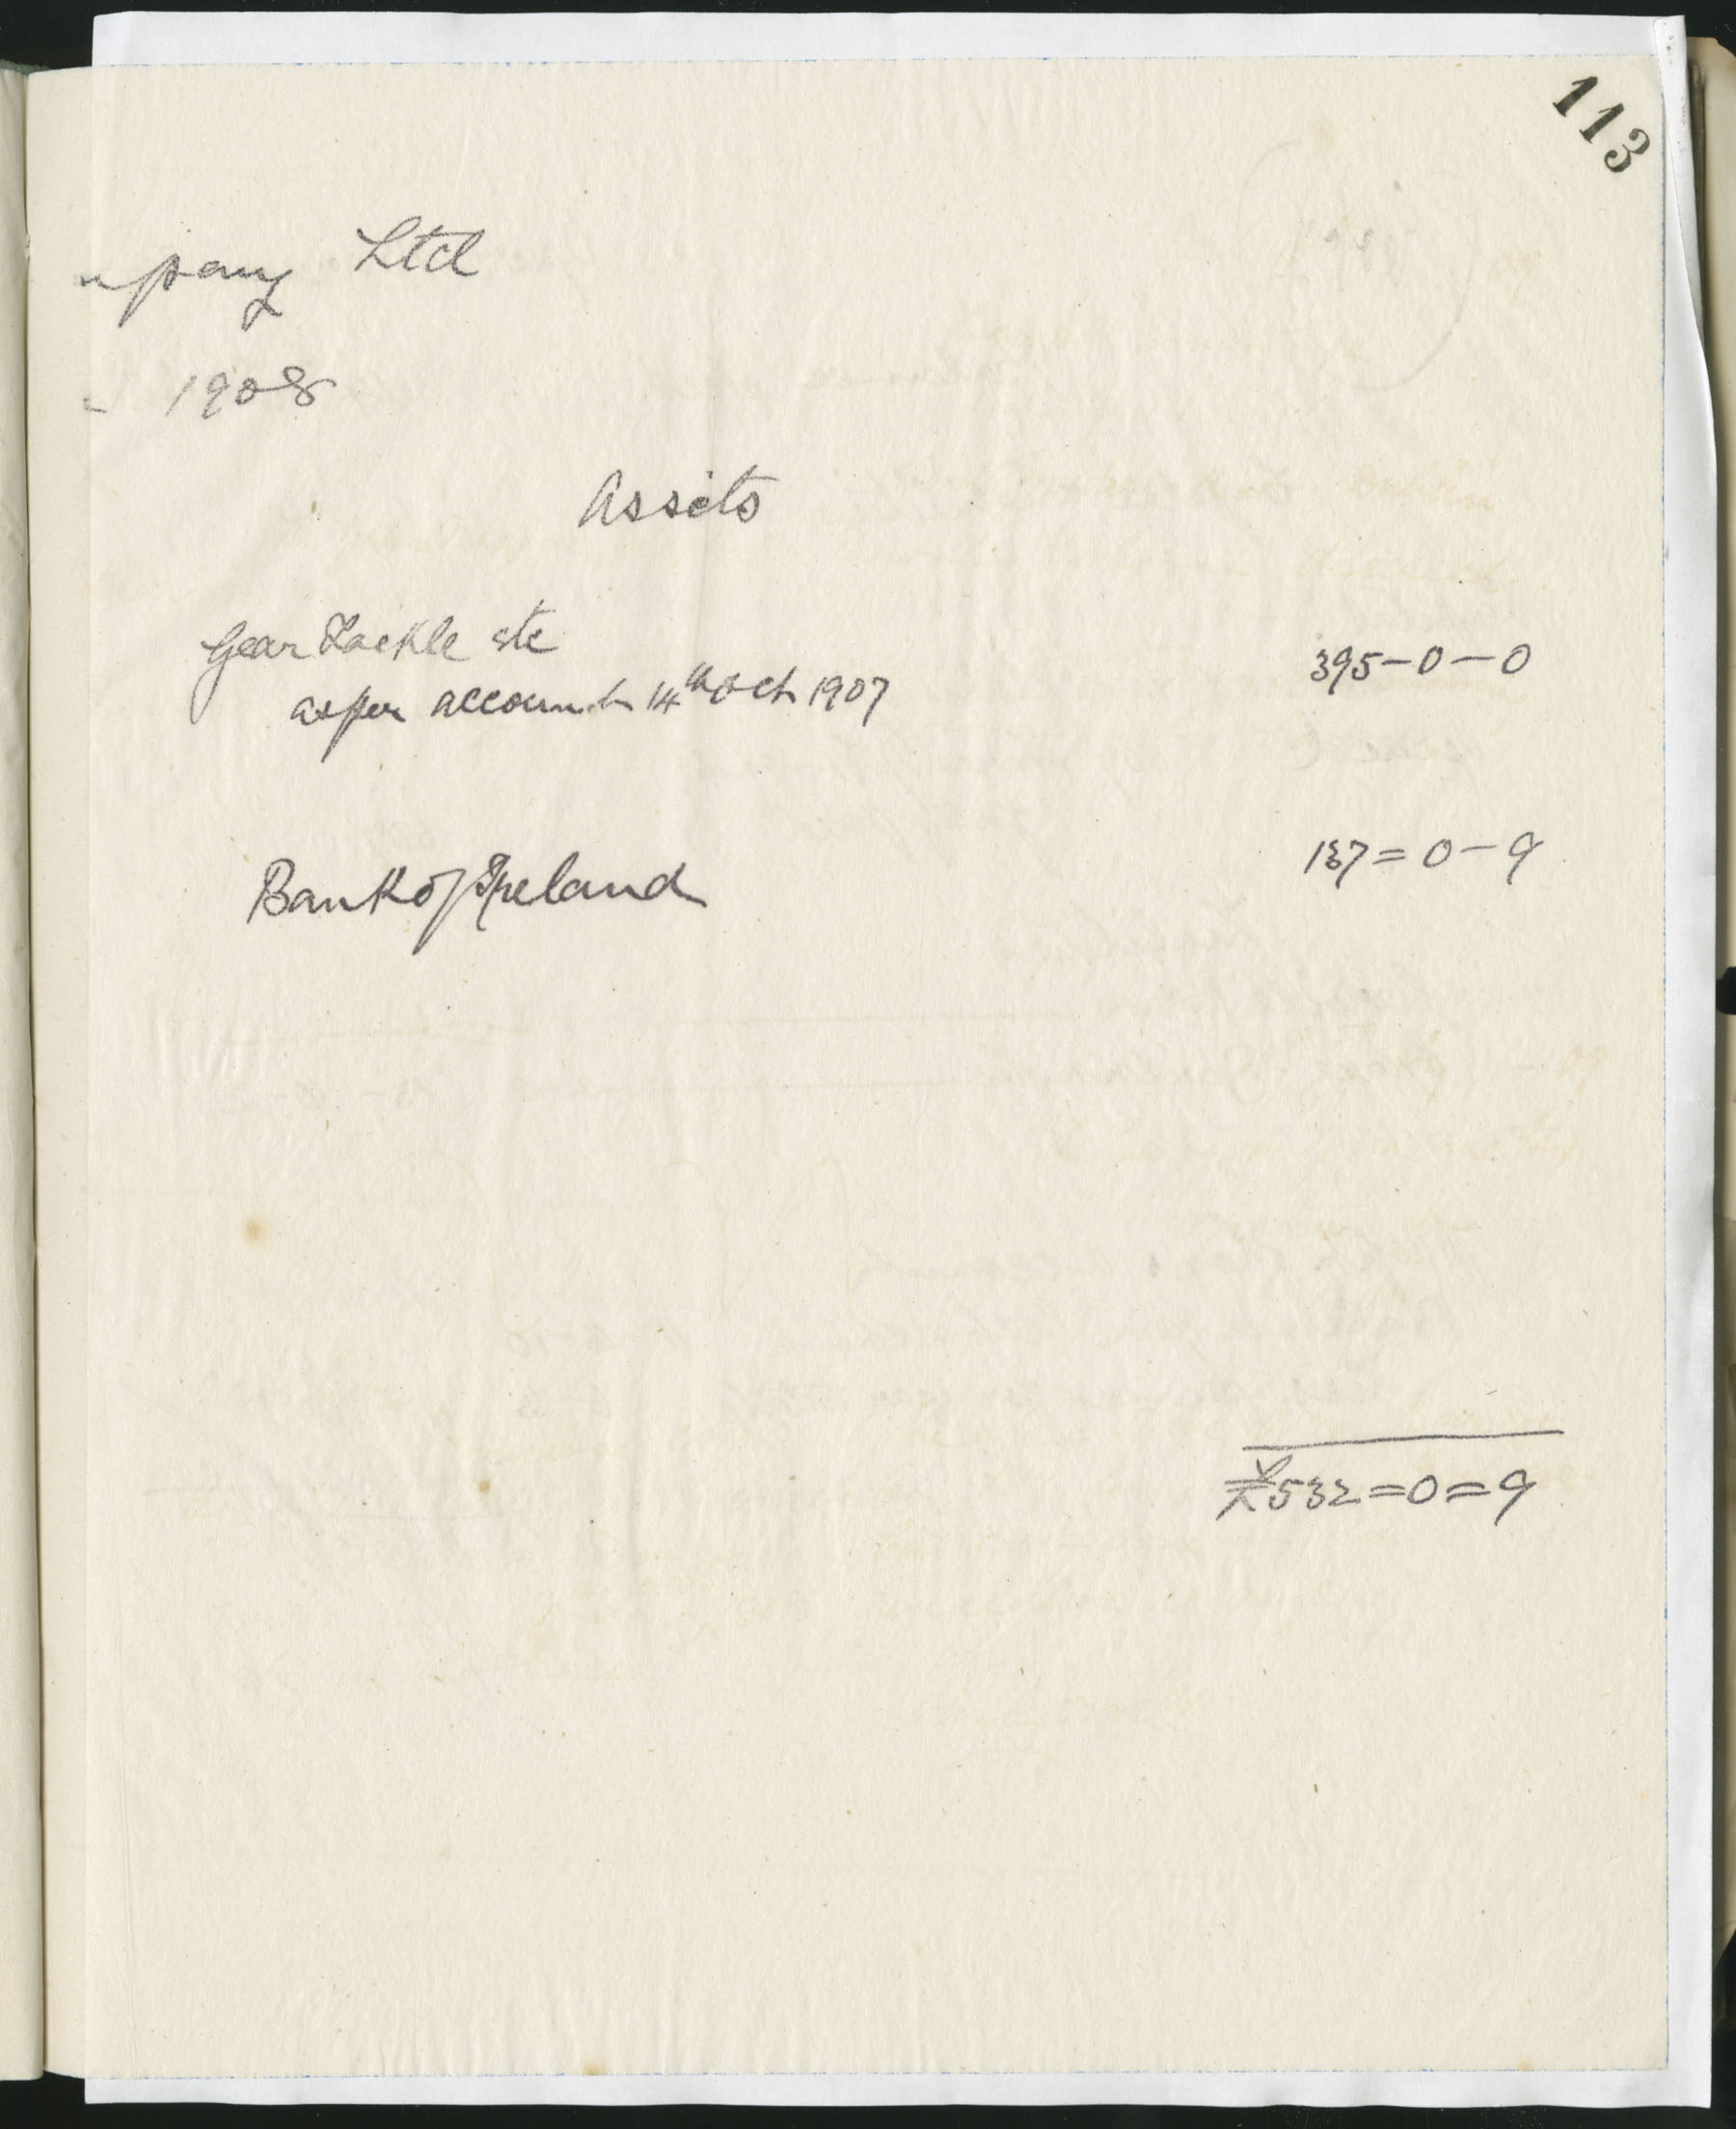 113
mpany Ltd
1908
Assets
Gear Tackle etc
395-0-0
as per account 14th Oct 1907
137=0-9
Bank of Ireland
£532=0=9